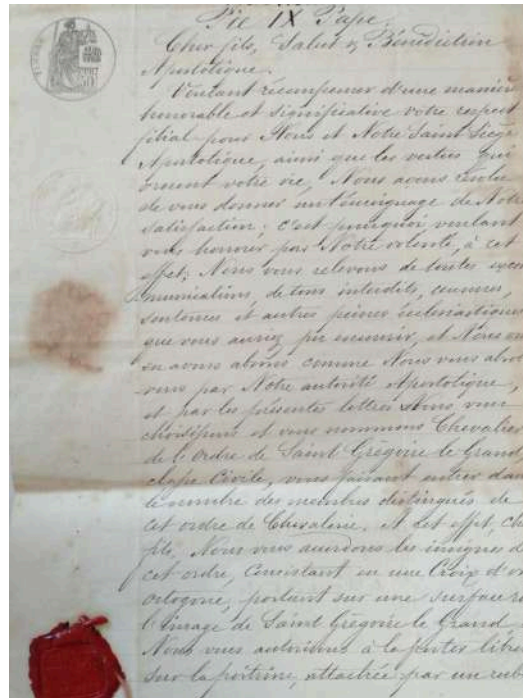 Pie IX Pape.
Cher fils, Salut & Bénédiction
Apostolique.
Voulant récompenser d'une manière
honorable et significative votre respect
filial pour Nous et Notre Saint Siège
Apostolique, ainsi que les vertus qui
ornent votre vie, Nous avons résolu
de vous donner un témoignage de Notre
satisfaction; c'est pourquoi, voulant
vous honorer par Notre volonté, à cet
effet, Nous vous relevons de toutes excom
munication, de tous interdits, censures,
sentences et autres peines écclésiastiques
que vous auriez pu encourir, et Nous en
en avons absous comme Nous vous absol
vons par Notre autorité Apostolique,
et par les présentes lettres Nous vous
choisissons et vous nommons Chevalier
de l'ordre de Saint Grégoire le Grand,
classe Civile, vous faisant entrer dans
le nombre des membres distingués de
cet ordre de Chevalerie. A cet effet, cher
fils, Nous vous accordons les insignes de
cet ordre, Consistant en une Croix d'or
octogone, portant sur une surface ro
l'image de Saint Grégoire le Grand
Nous vous autorisons à la porter libre
sur la poitrine, attachée par un ruba